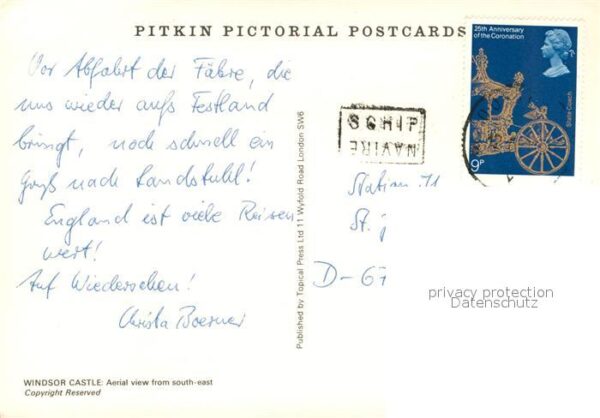 PITKIN PICTORIAL POSTCARDS
25th Anniversary
of the Coronation
State Coach
9P
Vor Abfahrt der Fähre, die
uns wieder aufs Festland
bringt, noch schnell ein
Gruß nach Landstuhl!
England ist viele Reisen
wert!
Auf Wiedersehen!
Christa Boerner
SCHIP
NAVIRE
Station 11
St.
D-67
Published by Topical Press Ltd 11 Wyfold Road London SW6
privacy protection
Datenschutz
WINDSOR CASTLE: Aerial view from south-east
Copyright Reserved